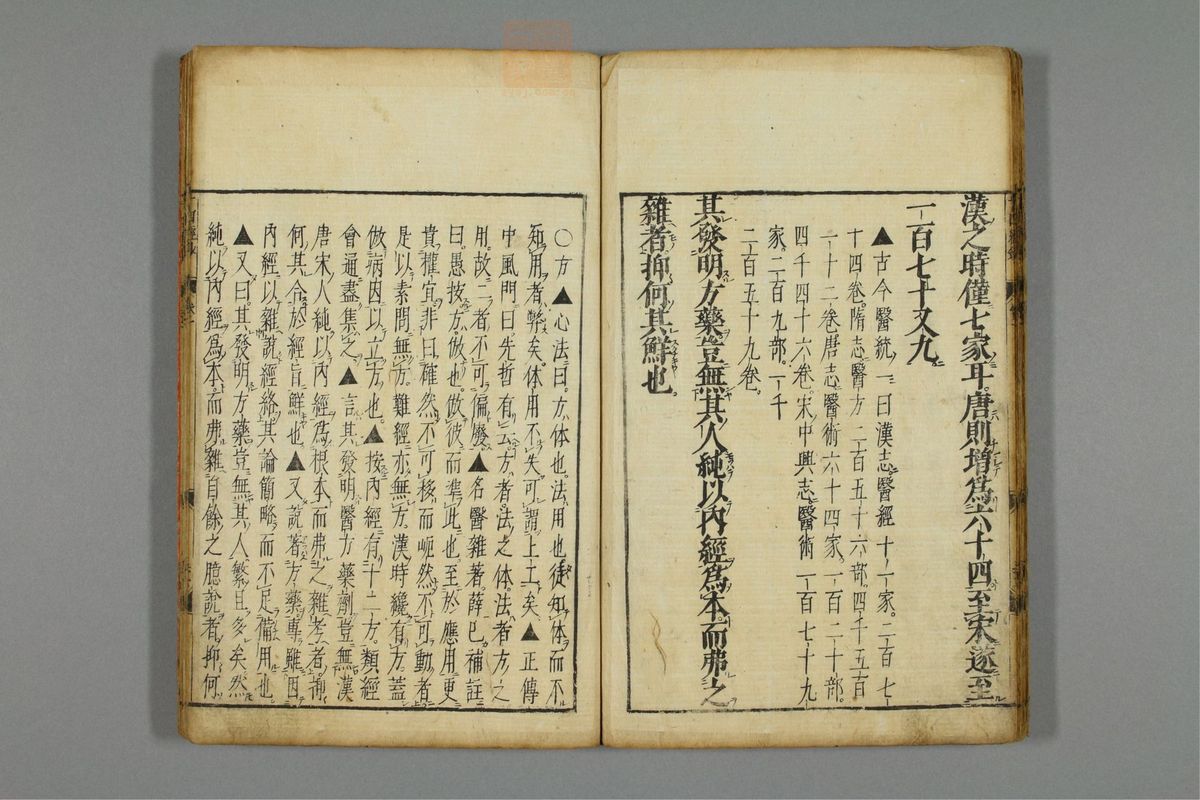 漢之時僅七家耳唐則增為六十四至宋遂至
一百七十又九
▲古今醫統一曰漢志醫經十一家二百七
十四卷隋志醫方二百五十六部四千五百
一十二卷唐志醫術六十四家一百二十部
四千四十六卷宋中興志醫術一百七十九
家二百九部一千
二百五十九卷
其發明方藥豈無其人純以內經為本而弗之
雜者抑何其鮮也
〇方▲心法曰方体也法用也徒知体而不
知用者弊矣体用不失可謂上工矣▲正傳
中風門曰先哲有云方者法之体法者方之
用故二者不可偏廢▲名醫雜著薛巳補註
曰愚按方倣也倣彼而準此也至於應用更
貴權宜非曰確然不可移而岻然不可動者
是以素問無方難經亦無方漢時纔有方蓋
倣病因以立方也▲按內經有十二方類經
會通盡集之▲言其發明醫方藥劑豈無漢
唐宋人純以內經為根本而弗之雜考者抑
何其合於經旨鮮也▲又說著方藥專雖因
內經以雜說經絡其論簡略而不足備用也
▲又曰其發明方藥豈無其人繁且多矣然
純以內經為本而弗雜自餘之臆說者抑何